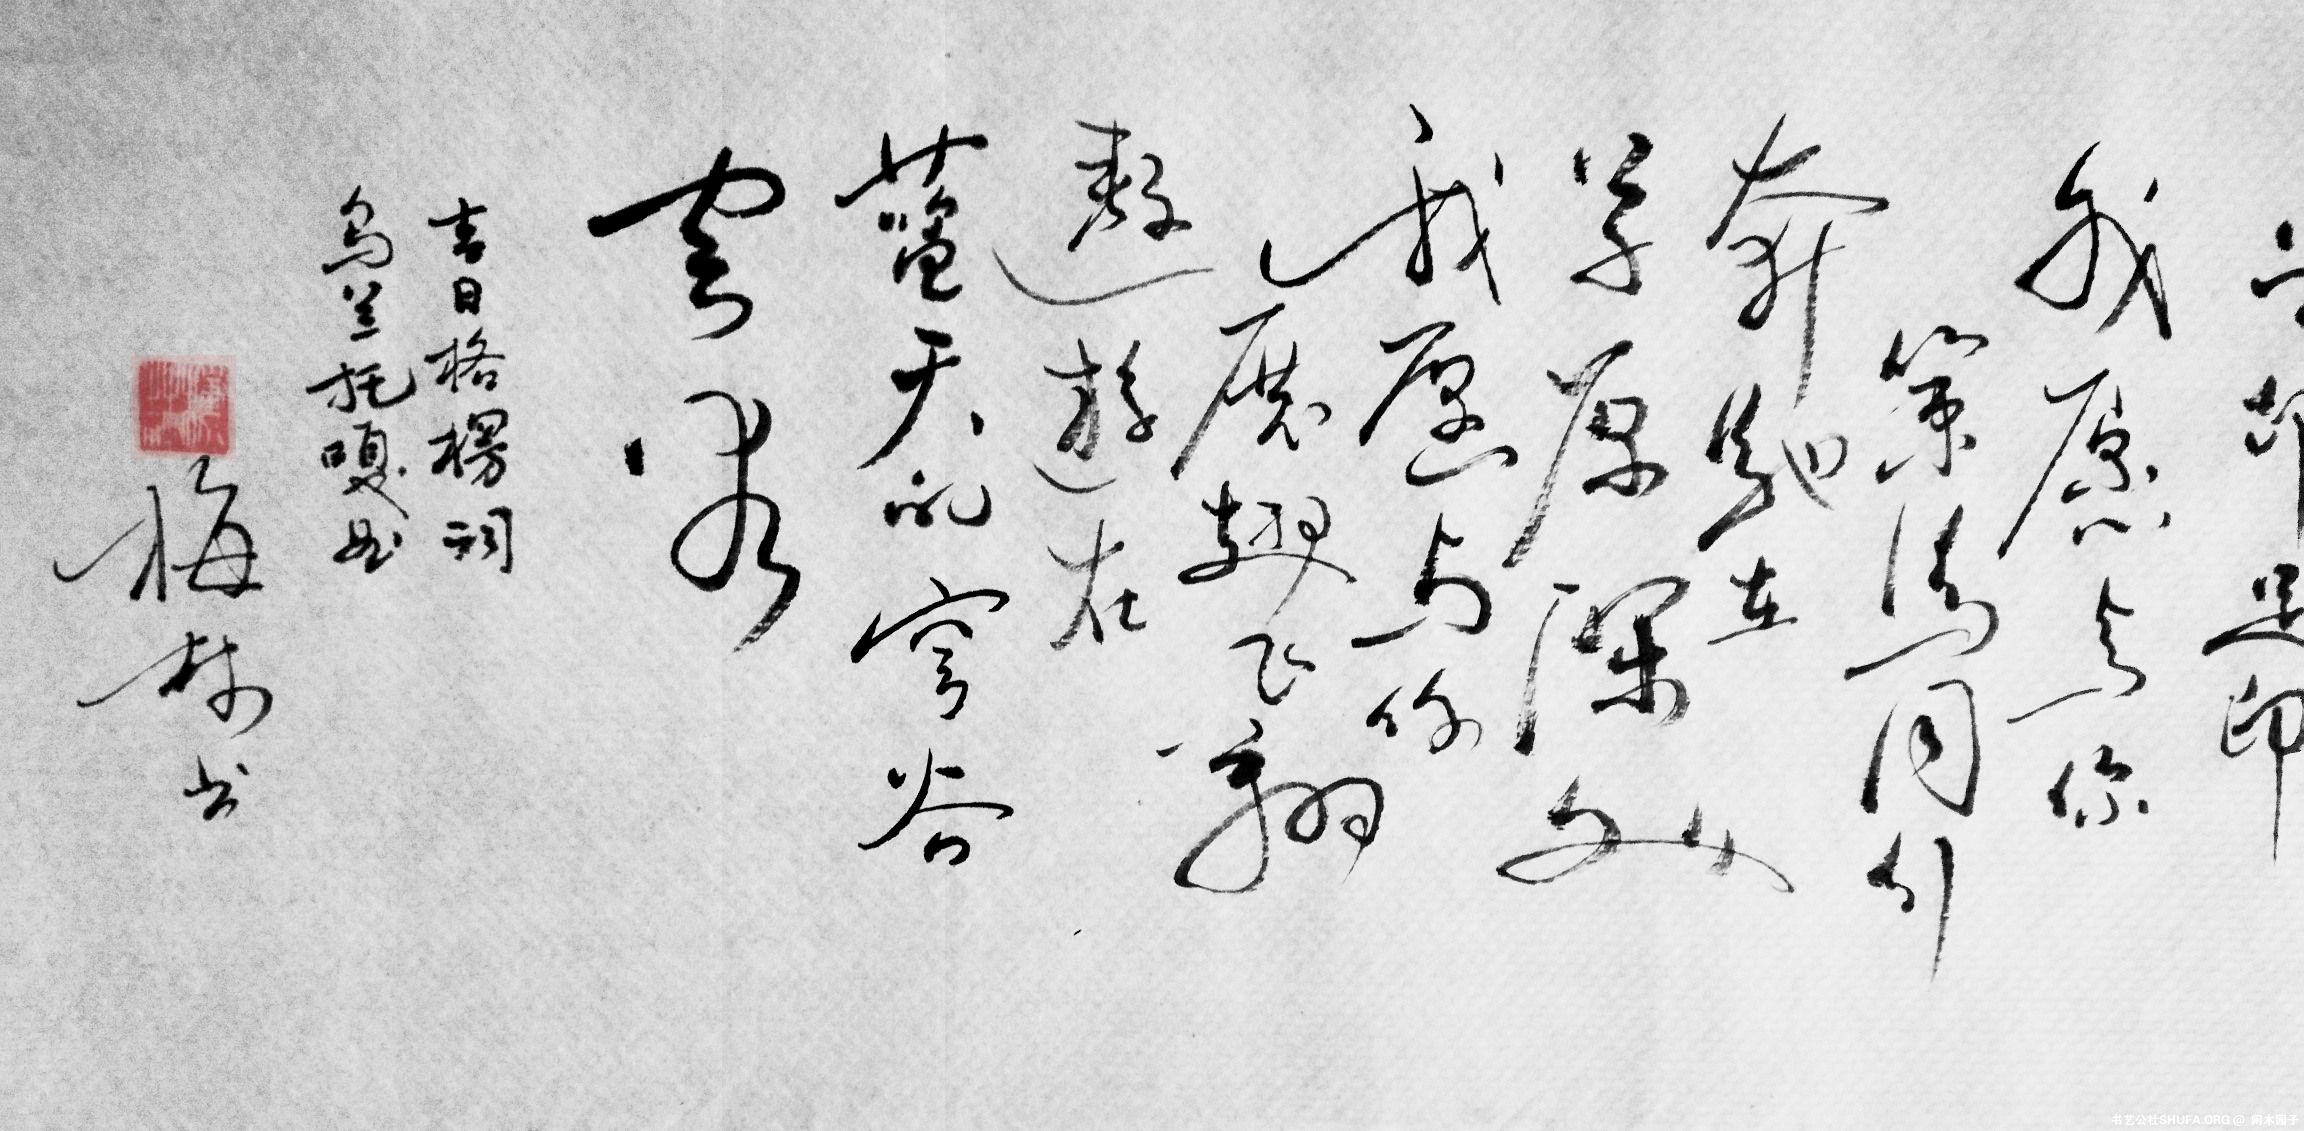 印
我愿与你
策马同行
奔驰在
草原深处
我愿与你
展翅飞翔
遨遊在
藍天的穹谷
吉日格楞词
乌兰托嘎曲
梅 书
书艺公社SHUFA.ORG @